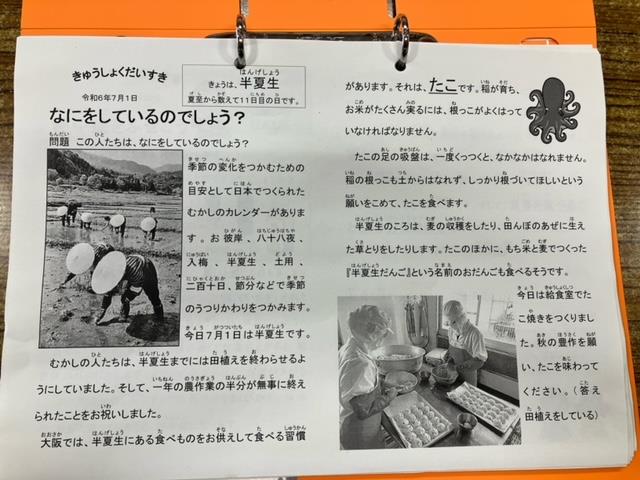 きゅうしょくだいすき
きょうは、半夏生
夏至から数えて11日目の日です。
令和6年7月1日
なにをしているのでしょう?
問題 この人たちは、なにをしているのでしょう?
季節の変化をつかむための
目安として日本でつくられた
むかしのカレンダーがありま
す。お彼岸、八十八夜、
入梅、半夏生、土用、
二百十日、節分などで季節
のうつりかわりをつかみます。
今日7月1日は半夏生です。
むかしの人たちは、半夏生までには田植えを終わらせるよ
うにしていました。そして、一年の農作業の半分が無事に終え
られたことをお祝いしました。
大阪では、半夏生にある食べものをお供えして食べる習慣
があります。それは、たこです。稲が育ち、
お米がたくさん実るには、根っこがよくはって
いなければなりません。
たこの足の吸盤は、一度くっつくと、なかなかはなれません。
稲の根っこも土からはなれず、しっかり根づいてほしいという
願いをこめて、たこを食べます。
半夏生のころは、麦の収穫をしたり、田んぼのあぜに生え
た草とりをしたりします。たこのほかに、もち米と麦でつくった
『半夏生だんご』という名前のおだんごも食べるそうです。
今日は給食室でた
こ焼きをつくりまし
た。秋の豊作を願
い、たこを味わって
ください。（答え
田植えをしている）